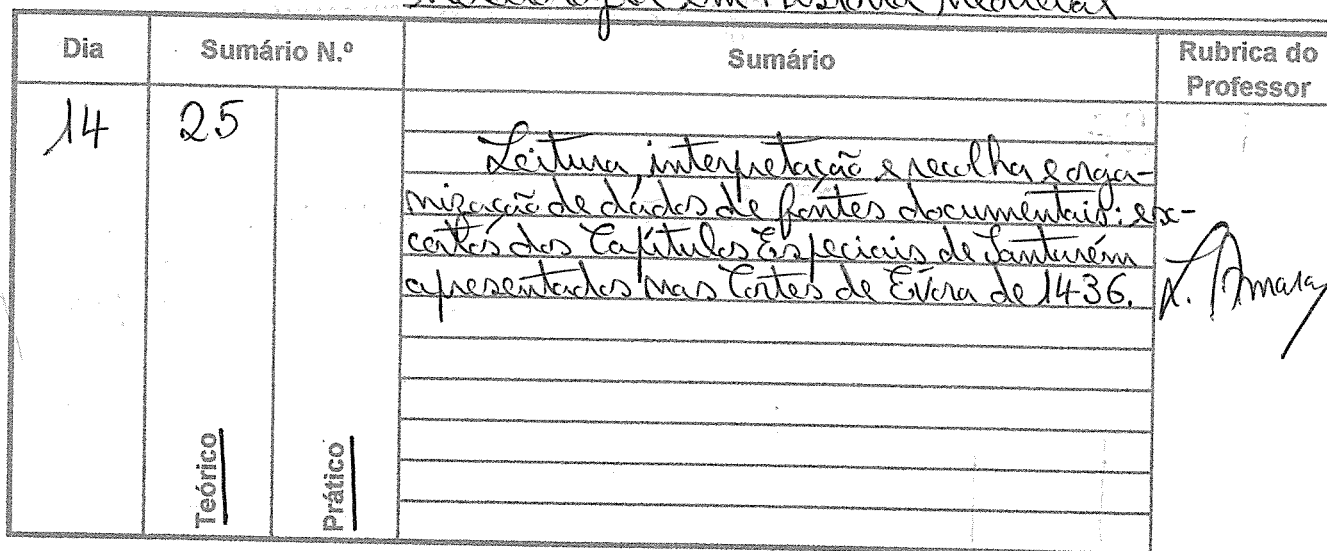 em História Medieval
Dia
Sumário N.º
Sumário
Rubrica do
Professor
14
25
Leitura, interpretação e recolha e orga-
nização de dados de fontes documentais: ex-
certos dos Capítulos Especiais de Santarém
apresentados nas Cortes de Évora de 1436.
L. Amaral
Teórico
Prático